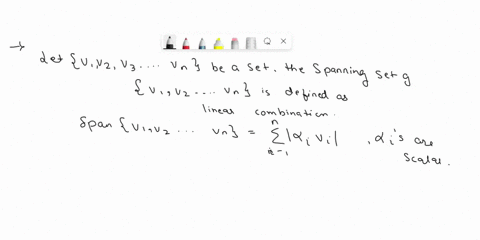 → Let {v1, v2, v3 .... vn} be a set. the spanning set of
{v1, v2 .... vn} is defined as
linear combination.
Span {v1, v2 ... vn} = n∑i=1 |αi vi| , αi's are
scalar.